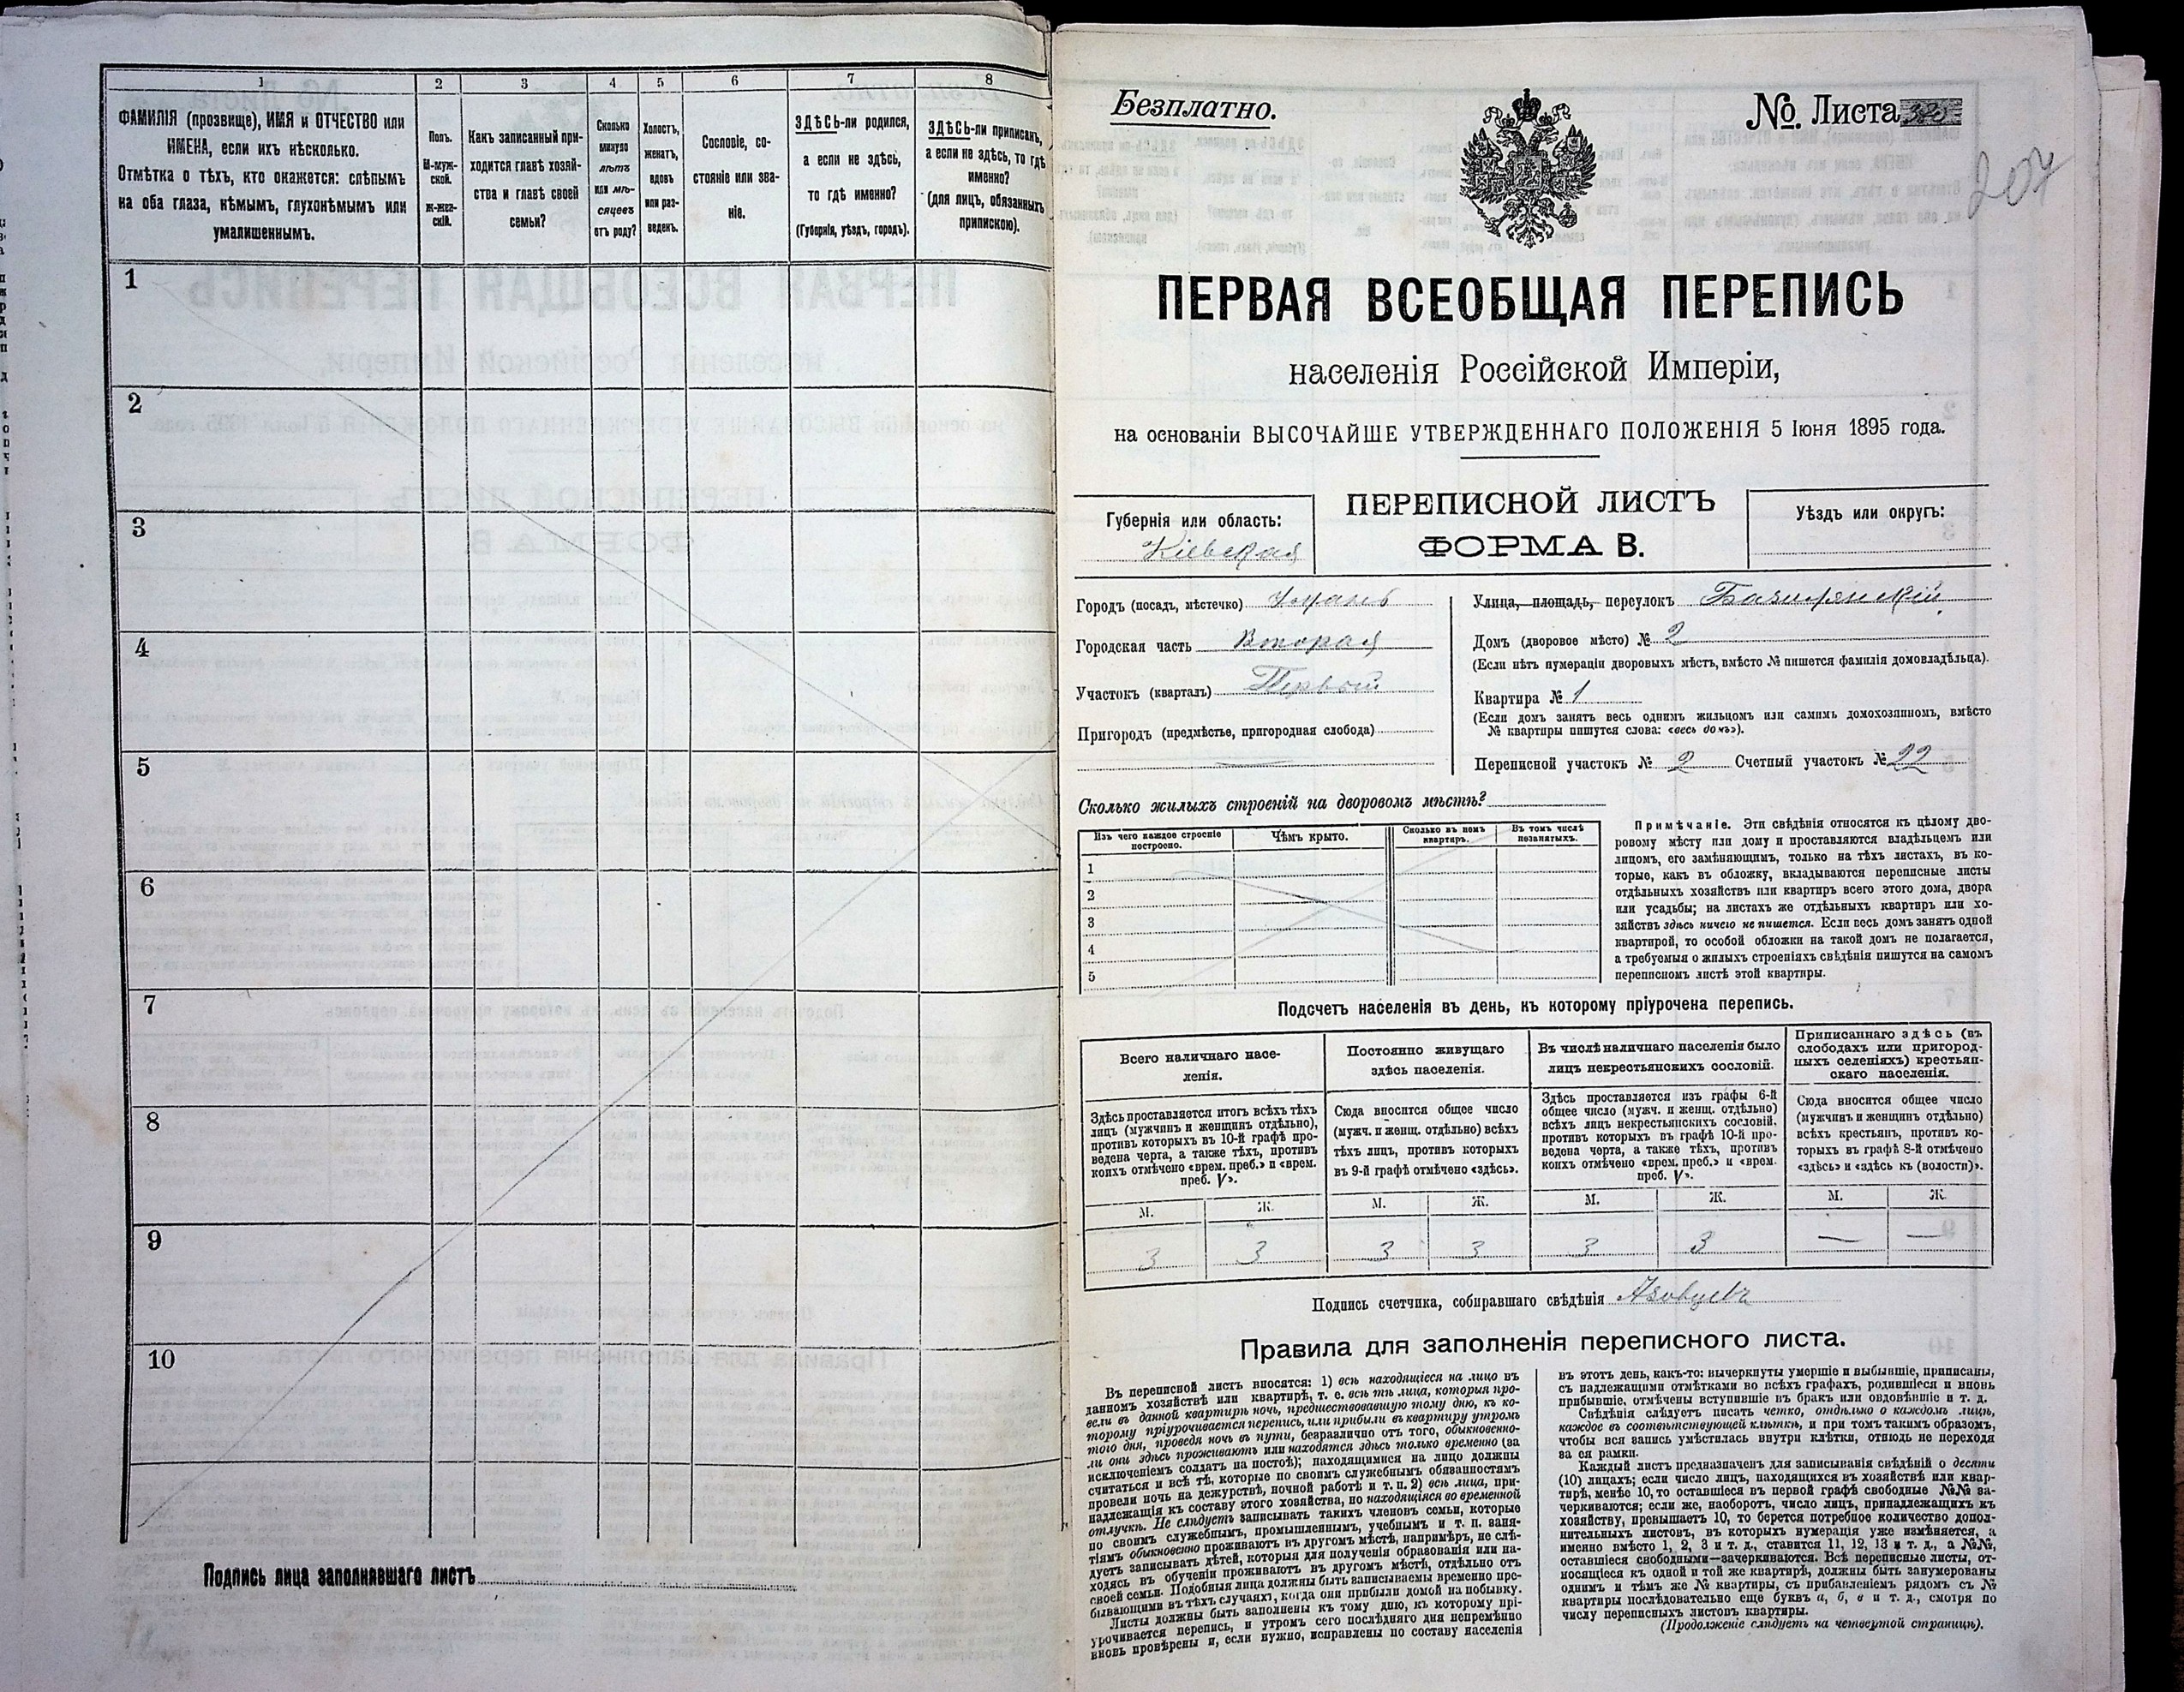 1
2
3
4
5
6
7
8
ФАМИЛІЯ (прозвище), ИМЯ и ОТЧЕСТВО или
ИМЕНА, если ихъ нѣсколько.
Отмѣтка о тѣхъ, кто окажется: слѣпымъ
на оба глаза, нѣмымъ, глухонѣмымъ или
умалишеннымъ.
Полъ.
М-муж-
ской.
Ж-жен-
скій.
Какъ записанный при-
ходится главѣ хозяй-
ства и главѣ своей
семьи?
Сколько
минуло
лѣтъ
или мѣ-
сяцевъ
отъ роду?
Холостъ,
женатъ,
вдовъ
или раз-
веденъ.
Сословіе, со-
стояніе или зва-
ніе.
ЗДѢСЬ-ли родился,
а если не здѣсь,
то гдѣ именно?
(Губернія, уѣздъ, городъ).
ЗДѢСЬ-ли приписанъ,
а если не здѣсь, то гдѣ
именно?
(для лицъ, обязанныхъ
припискою).
1
2
3
4
5
6
7
8
9
10
Подпись лица заполнявшаго листъ
Безплатно.
№ Листа
207
ПЕРВАЯ ВСЕОБЩАЯ ПЕРЕПИСЬ
населенія Россійской Имперіи,
на основаніи ВЫСОЧАЙШЕ УТВЕРЖДЕННАГО ПОЛОЖЕНІЯ 5 Іюня 1895 года.
Губернія или область:
Кіевская
ПЕРЕПИСНОЙ ЛИСТЪ
ФОРМА В.
Уѣздъ или округъ:
Городъ (посадъ, мѣстечко) Умань
Городская часть Вторая
Участокъ (кварталъ) Первый
Пригородъ (предмѣстье, пригородная слобода)
Улица, площадь, переулокъ
Домъ (дворовое мѣсто) № 2
(Если нѣтъ нумераціи дворовыхъ мѣстъ, вмѣсто № пишется фамилія домовладѣльца).
Квартира № 1
(Если домъ занятъ весь однимъ жильцомъ или самимъ домохозяиномъ, вмѣсто
№ квартиры пишутся слова: «весь домъ»).
Переписной участокъ № 2 Счетный участокъ № 22
Сколько жилыхъ строеній на дворовомъ мѣстѣ?
Изъ чего каждое строеніе
построено.
Чѣмъ крыто.
Сколько въ немъ
квартиръ.
Въ томъ числѣ
незанятыхъ.
1
2
3
4
5
Примѣчаніе. Эти свѣдѣнія относятся къ цѣлому дво-
ровому мѣсту или дому и проставляются владѣльцемъ или
лицомъ, его замѣняющимъ, только на тѣхъ листахъ, въ ко-
торые, какъ въ обложку, вкладываются переписные листы
отдѣльныхъ хозяйствъ или квартиръ всего этого дома, двора
или усадьбы; на листахъ же отдѣльныхъ квартиръ или хо-
зяйствъ здѣсь ничего не пишется. Если весь домъ занятъ одной
квартирой, то особой обложки на такой домъ не полагается,
а требуемыя о жилыхъ строеніяхъ свѣдѣнія пишутся на самомъ
переписномъ листѣ этой квартиры.
Подсчетъ населенія въ день, къ которому пріурочена перепись.
Всего наличнаго насе-
ленія.
Постоянно живущаго
здѣсь населенія.
Въ числѣ наличнаго населенія было
лицъ некрестьянскихъ сословій.
Приписаннаго здѣсь (въ
слободахъ или пригород-
ныхъ селеніяхъ) крестьян-
скаго населенія.
Здѣсь проставляется итогъ всѣхъ тѣхъ
лицъ (мужчинъ и женщинъ отдѣльно),
противъ которыхъ въ 10-й графѣ про-
ведена черта, а также тѣхъ, противъ
коихъ отмѣчено «врем. преб.» и «врем.
преб. V».
Сюда вносится общее число
(мужч. и женщ. отдѣльно) всѣхъ
тѣхъ лицъ, противъ которыхъ
въ 9-й графѣ отмѣчено «здѣсь».
Здѣсь проставляется изъ графы 6-й
общее число (мужч. и женщ. отдѣльно)
всѣхъ лицъ некрестьянскихъ сословій,
противъ которыхъ въ графѣ 10-й про-
ведена черта, а также тѣхъ, противъ
коихъ отмѣчено «врем. преб.» и «врем.
преб. V».
Сюда вносится общее число
(мужчинъ и женщинъ отдѣльно)
всѣхъ крестьянъ, противъ ко-
торыхъ въ графѣ 8-й отмѣчено
«здѣсь» и «здѣсь къ (волости)».
М. Ж. М. Ж. М. Ж. М. Ж.
3 3 3 3 3 3 — —
Подпись счетчика, собиравшаго свѣдѣнія
Правила для заполненія переписного листа.
Въ переписной листъ вносятся: 1) всѣ находящіеся на лицо въ
данномъ хозяйствѣ или квартирѣ, т. е. всѣ тѣ лица, которыя про-
вели въ данной квартирѣ ночь, предшествовавшую тому дню, къ ко-
торому пріурочивается перепись, или прибыли въ квартиру утромъ
того дня, проведя ночь въ пути, безразлично отъ того, обыкновенно-
ли они здѣсь проживаютъ или находятся здѣсь только временно (за
исключеніемъ солдатъ на постоѣ); находящимися на лицо должны
считаться и всѣ тѣ, которые по своимъ служебнымъ обязанностямъ
провели ночь на дежурствѣ, ночной работѣ и т. п. 2) всѣ лица, при-
надлежащія къ составу этого хозяйства, но находящіяся во временной
отлучкѣ. Не слѣдуетъ записывать такихъ членовъ семьи, которые
по своимъ служебнымъ, промышленнымъ, учебнымъ и т. п. заня-
тіямъ обыкновенно проживаютъ въ другомъ мѣстѣ, напримѣръ, не слѣ-
дуетъ записывать дѣтей, которыя для полученія образованія или на-
ходясь въ обученіи проживаютъ въ другомъ мѣстѣ, отдѣльно отъ
своей семьи. Подобныя лица должны быть записываемы временно пре-
бывающими въ тѣхъ случаяхъ, когда они прибыли домой на побывку.
Листы должны быть заполнены къ тому дню, къ которому прі-
урочивается перепись, и утромъ сего послѣдняго дня непремѣнно
вновь провѣрены и, если нужно, исправлены по составу населенія
въ этотъ день, какъ-то: вычеркнуты умершіе и выбывшіе, приписаны,
съ надлежащими отмѣтками во всѣхъ графахъ, родившіеся и вновь
прибывшіе, отмѣчены вступившіе въ бракъ или овдовѣвшіе и т. д.
Свѣдѣнія слѣдуетъ писать четко, отдѣльно о каждомъ лицѣ,
каждое въ соотвѣтствующей клѣткѣ, и при томъ такимъ образомъ,
чтобы вся запись умѣстилась внутри клѣтки, отнюдь не переходя
за ея рамки.
Каждый листъ предназначенъ для записыванія свѣдѣній о десяти
(10) лицахъ; если число лицъ, находящихся въ хозяйствѣ или квар-
тирѣ, менѣе 10, то оставшіеся въ первой графѣ свободные №№ за-
черкиваются; если же, наоборотъ, число лицъ, принадлежащихъ къ
хозяйству, превышаетъ 10, то берется потребное количество допол-
нительныхъ листовъ, въ которыхъ нумерація уже измѣняется, а
именно вмѣсто 1, 2, 3 и т. д., ставится 11, 12, 13 и т. д., а №№,
оставшіеся свободными—зачеркиваются. Всѣ переписные листы, от-
носящіеся къ одной и той же квартирѣ, должны быть занумерованы
однимъ и тѣмъ же № квартиры, съ прибавленіемъ рядомъ съ №
квартиры послѣдовательно еще буквъ а, б, в и т. д., смотря по
числу переписныхъ листовъ квартиры.
(Продолженіе слѣдуетъ на четвертой страницѣ).